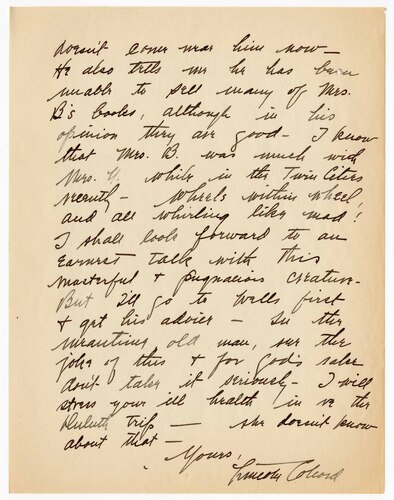 doesn't come near him now —
He also tells me he has been
unable to sell many of Mrs.
B's books, although in his
opinion they are good — I know
that Mrs. B. was much with
Mrs. U. while in the Twin Cities
recently — wheels within wheel,
and all whirling like mad!
I shall look forward to an
earnest talk with this
masterful & pugnacious creature —
But I'll go to Wells first
& get his advice — In the
meantime old man, see the
joke of this & for god's sake
don't take it seriously — I will
stress your ill health in re the
Duluth trip — she doesn't know
about that —
Yours,
Lincoln Colcord